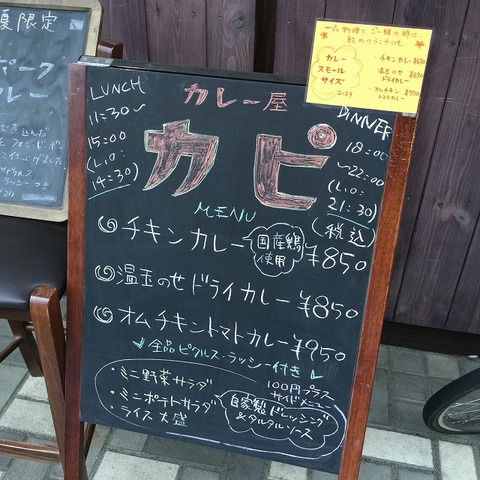 夏限定
カレー
カレー屋
カピ
LUNCH
11:30〜
15:00
(L.O:
14:30)
DINNER
18:00
〜22:00
(L.O:
21:30)
(税込)
MENU
チキンカレー 国産鶏使用 ¥850
温玉のせドライカレー ¥850
オムチキントマトカレー ¥950
全品ピクルス・ラッシー付き
100円プラス
サイドメニュー
・ミニ野菜サラダ
・ミニポテトサラダ
・ライス大盛
自家製ドレッシング
&タルタルソース
カレー
スモール
サイズ
・チキンカレー
・温玉のせ
ドライカレー
・オムチキン
トマトカレー